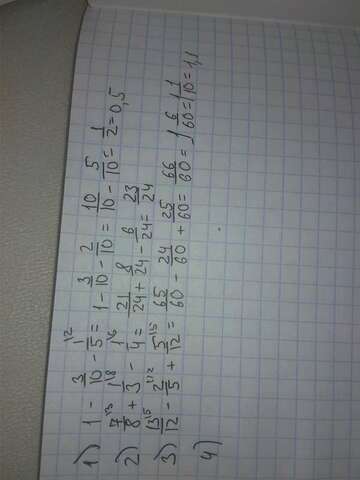 1) 1 - 3/10 - 1/5 /2 = 1 - 3/10 - 2/10 = 10/10 - 5/10 = 1/2 = 0,5
2) 7/8 /3 + 1/3 /8 - 1/4 /6 = 21/24 + 8/24 - 6/24 = 23/24
3) 13/12 /5 - 2/5 /12 + 5/12 /5 = 65/60 - 24/60 + 25/60 = 66/60 = 1 6/60 = 1 1/10 = 1,1
4)